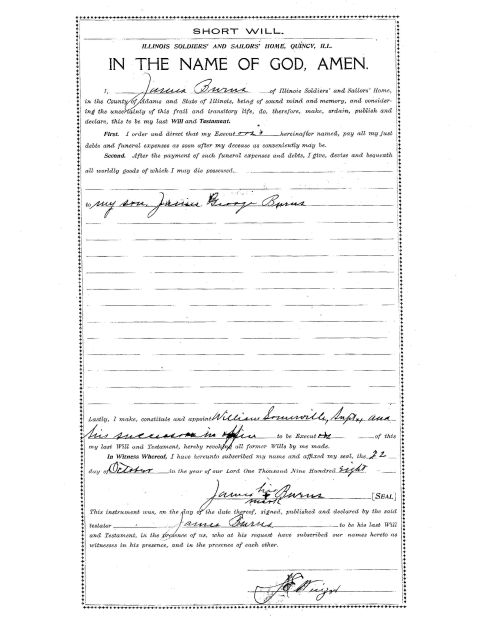 SHORT WILL.
ILLINOIS SOLDIERS' AND SAILORS' HOME, QUINCY, ILL.
IN THE NAME OF GOD, AMEN.
I, James Burns of Illinois Soldiers' and Sailors' Home,
in the County of Adams and State of Illinois, being of sound mind and memory, and consider-
ing the uncertainty of this frail and transitory life, do, therefore, make, ordain, publish and
declare, this to be my last Will and Testament.
First. I order and direct that my Executors hereinafter named, pay all my just
debts and funeral expenses as soon after my decease as conveniently may be.
Second. After the payment of such funeral expenses and debts, I give, devise and bequeath
all worldly goods of which I may die possessed.
to my son, James George Burns
Lastly, I make, constitute and appoint William Somerville, Supt, and
his successor in office to be Executors of this
my last Will and Testament, hereby revoking all former Wills by me made.
In Witness Whereof, I have hereunto subscribed my name and affixed my seal, the 22
day of October in the year of our Lord One Thousand Nine Hundred eight
James his Burns [SEAL]
mark
This instrument was, on the day of the date thereof, signed, published and declared by the said
testator James Burns to be his last Will
and Testament, in the presence of us, who at his request have subscribed our names hereto as
witnesses in his presence, and in the presence of each other.